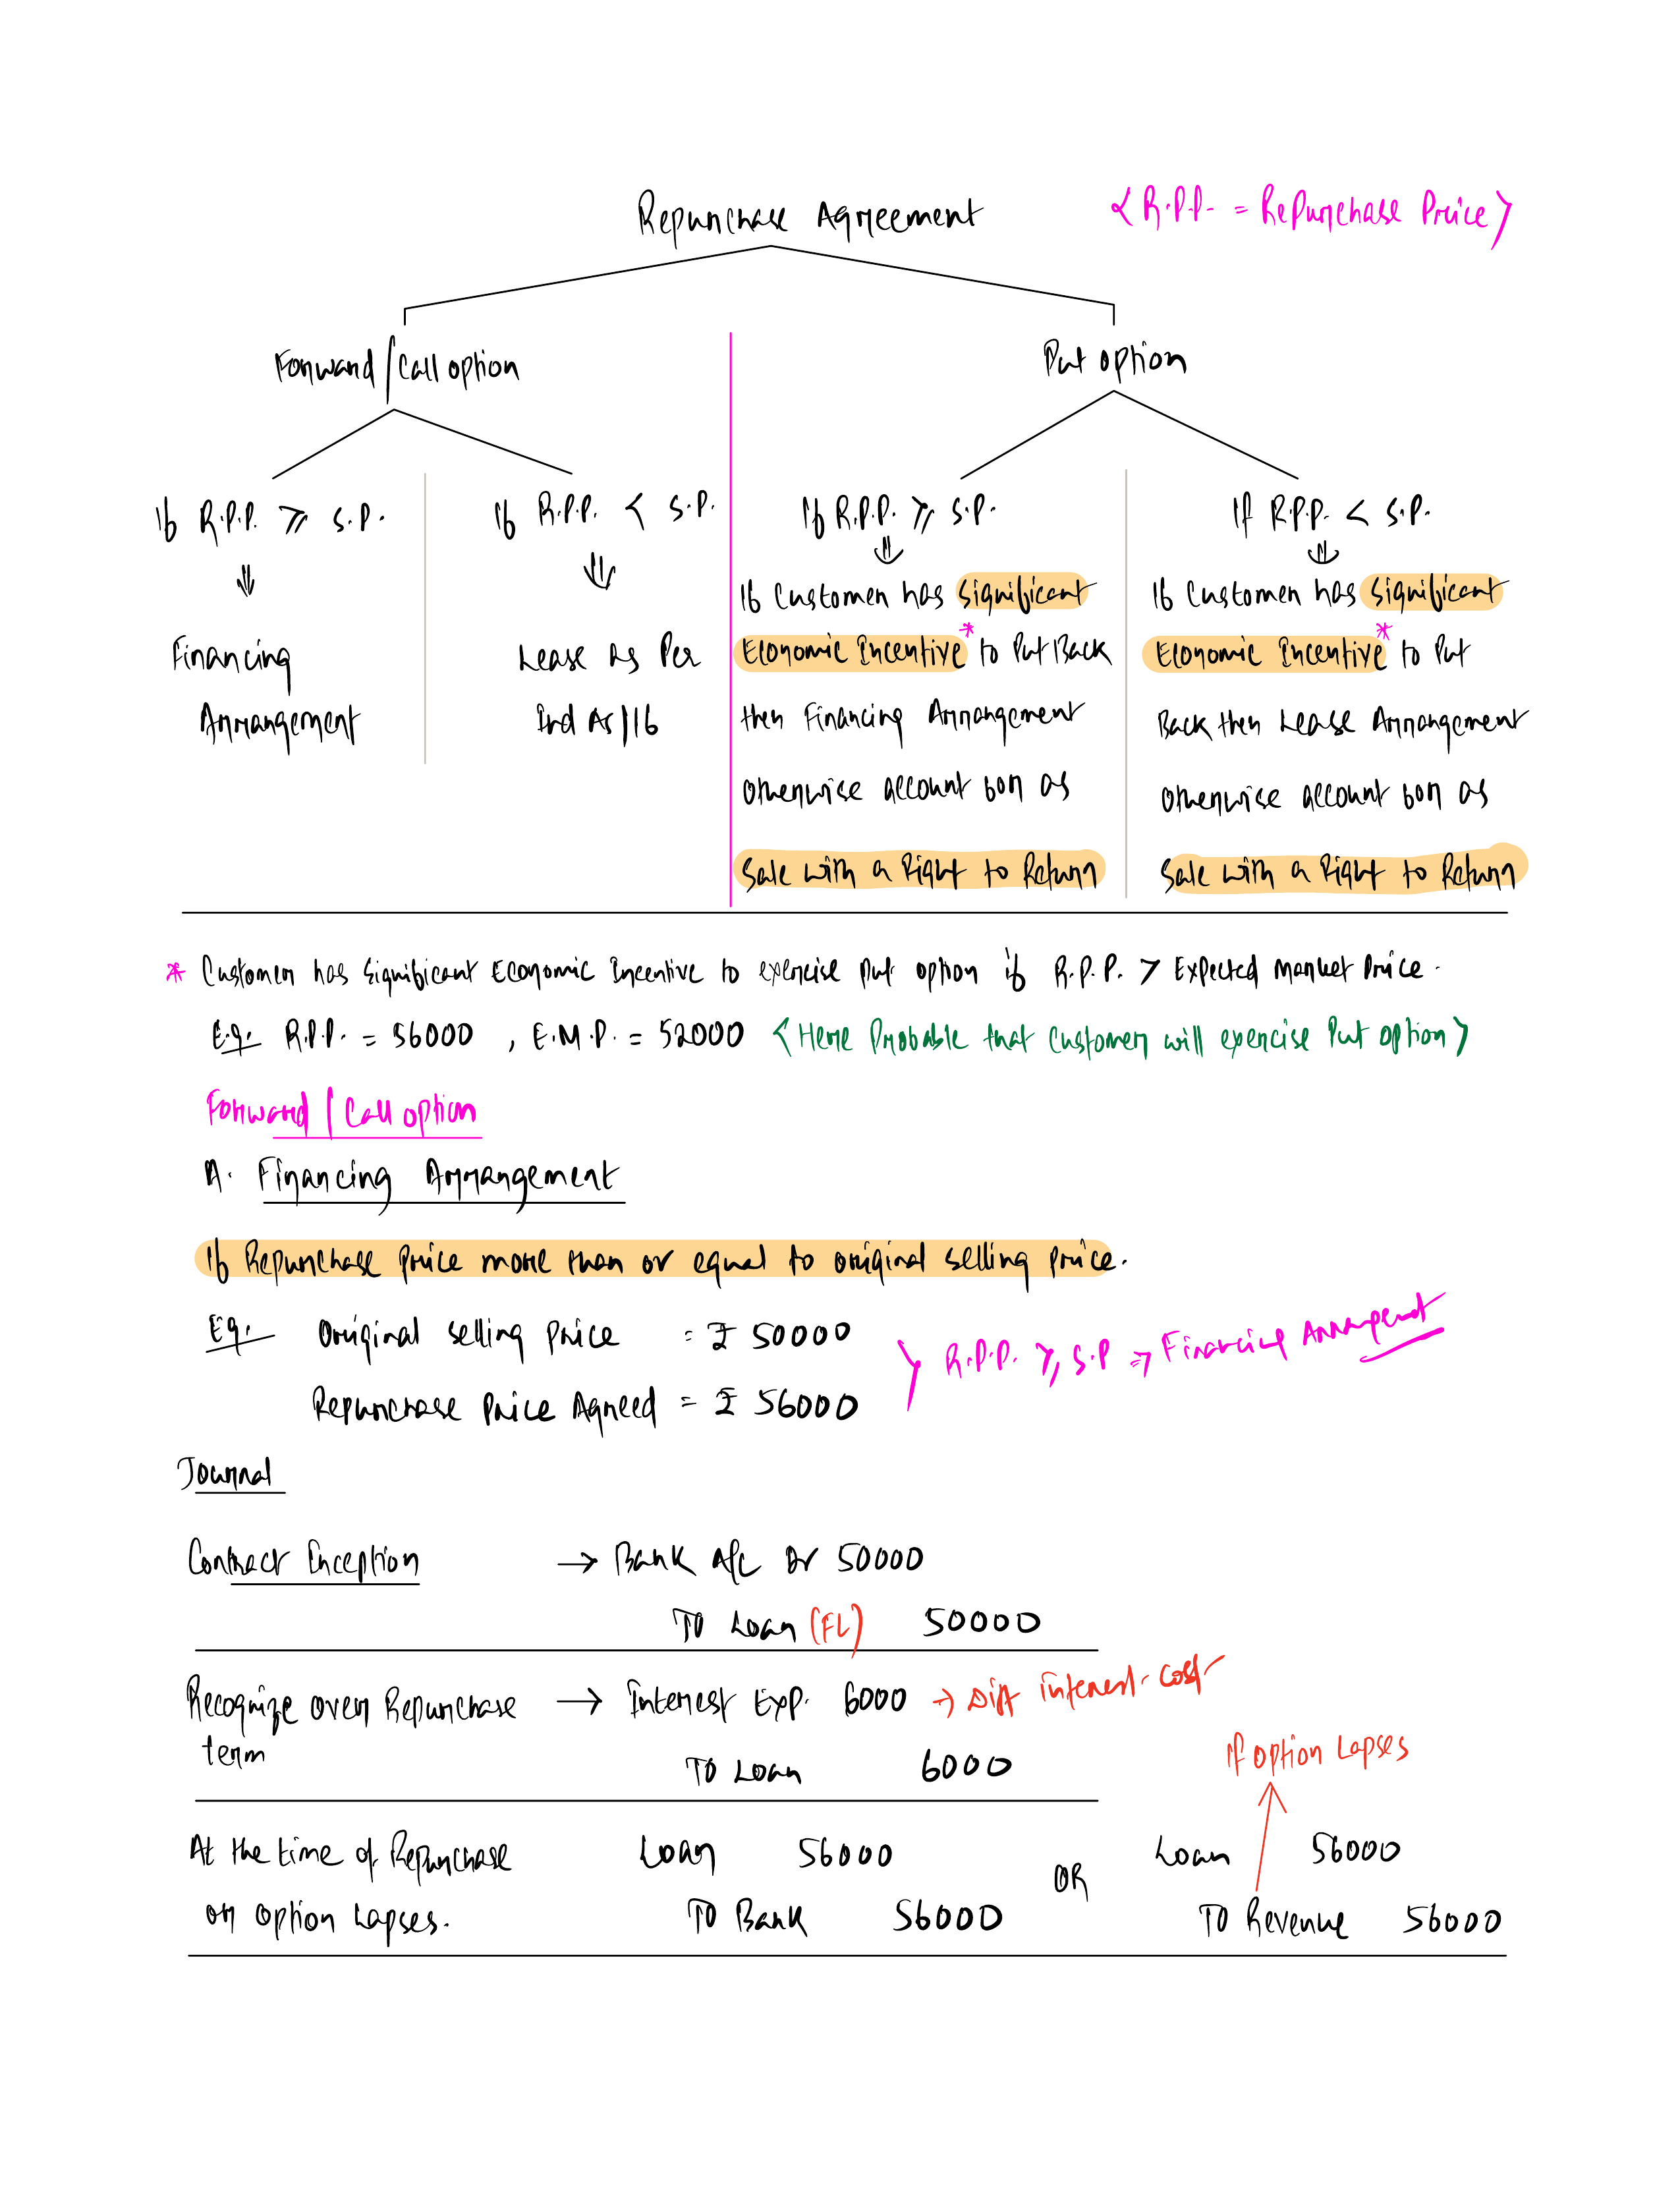 Repurchase Agreement
< R.P.P. = RePurchase Price >
Forward / Call option
Put option
If R.P.P. ≥ S.P.
⇓
Financing
Arrangement
If R.P.P. < S.P.
⇓
Lease as Per
Ind AS 116
If R.P.P. ≥ S.P.
⇓
If Customer has Significant
Economic Incentive * to Put Back
then Financing Arrangement
Otherwise account for as
Sale with a Right to Return
If R.P.P. < S.P.
⇓
If Customer has Significant
Economic Incentive * to Put
Back then Lease Arrangement
Otherwise account for as
Sale with a Right to Return
* Customer has Significant Economic Incentive to exercise put option if R.P.P. > Expected market price.
E.g. R.P.P. = 56000 , E.M.P. = 52000 < Here Probable that Customer will exercise Put option >
Forward / Call option
A. Financing Arrangement
If Repurchase price more than or equal to original selling price.
Eg. Original selling price = ₹ 50000
Repurchase Price Agreed = ₹ 56000
} R.P.P. ≥ S.P ⇒ Financing Arrangement
Journal
Contract Inception → Bank A/c Dr 50000
To Loan (FL) 50000
Recognize over Repurchase term → Interest Exp. 6000 → Diff interest cost
To Loan 6000
At the time of Repurchase
or option lapses.
Loan 56000
To Bank 56000
OR
If option lapses
Loan 56000
To Revenue 56000